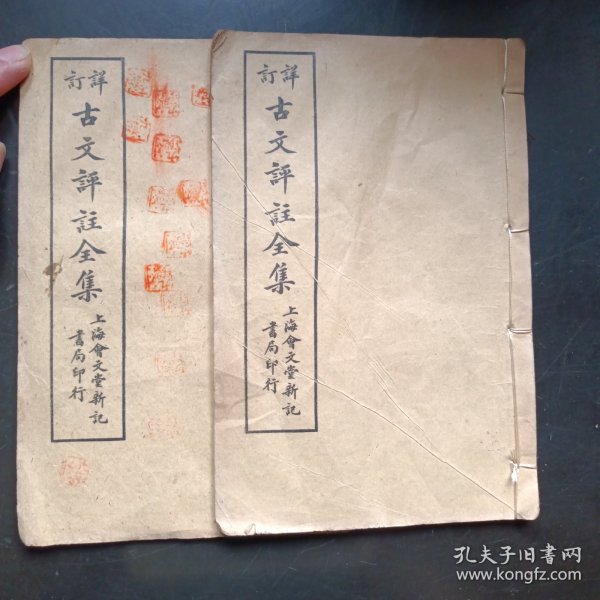 詳訂
古文評註全集
上海會文堂新記
書局印行
詳訂
古文評註全集
上海會文堂新記
書局印行
孔夫子旧书网
www.kongfz.com